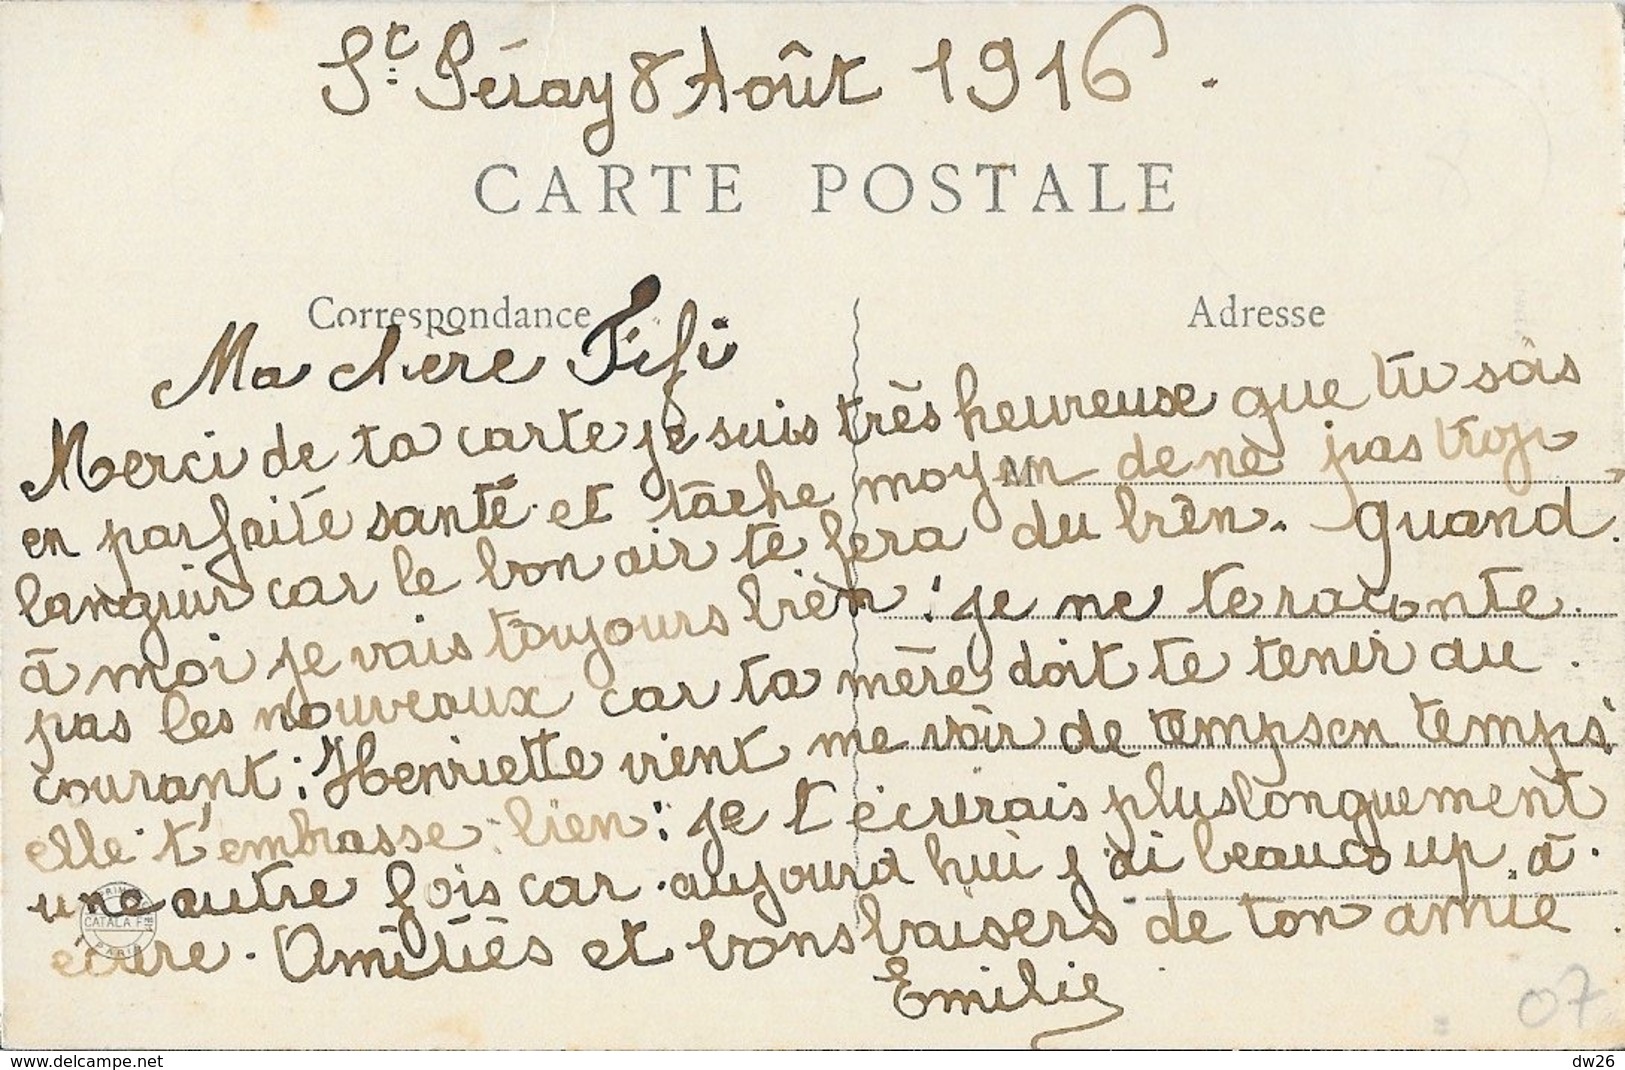 St. Péray 8 Août 1916.
CARTE POSTALE
Correspondance
Adresse
Ma chère Fifi
Merci de ta carte je suis très heureuse que tu sois
en parfaite santé et tâche moyen de ne pas trop
M
languir car le bon air te fera du bien. Quand
à moi je vais toujours bien : je ne te raconte
pas les nouveaux car ta mère doit te tenir au
courant ; Henriette vient me voir de temps en temps
elle t'embrasse bien : je t'écrirais plus longuement
une autre fois car aujourd'hui j'ai beaucoup à
écrire. Amitiés et bons baisers de ton amie
Emilie
CATALA Fres
PARIS
07
dw26